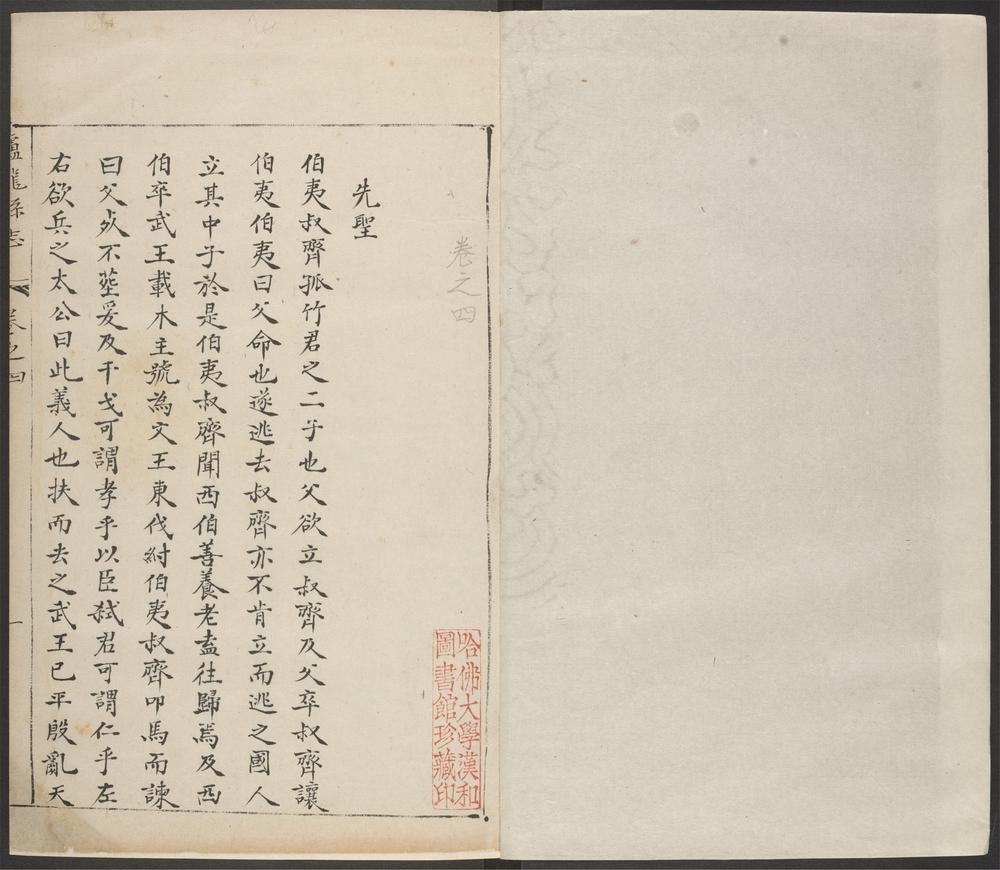 卷之四
哈佛大學漢和
圖書館珍藏印
先聖
伯夷叔齊孤竹君之二子也父欲立叔齊及父卒叔齊讓
伯夷伯夷曰父命也遂逃去叔齊亦不肯立而逃之國人
立其中子於是伯夷叔齊聞西伯善養老盍往歸焉及西
伯卒武王載木主號為文王東伐紂伯夷叔齊叩馬而諫
曰父死不葬爰及干戈可謂孝乎以臣弒君可謂仁乎左
右欲兵之太公曰此義人也扶而去之武王已平殷亂天
盧龍縣志 卷之四 一